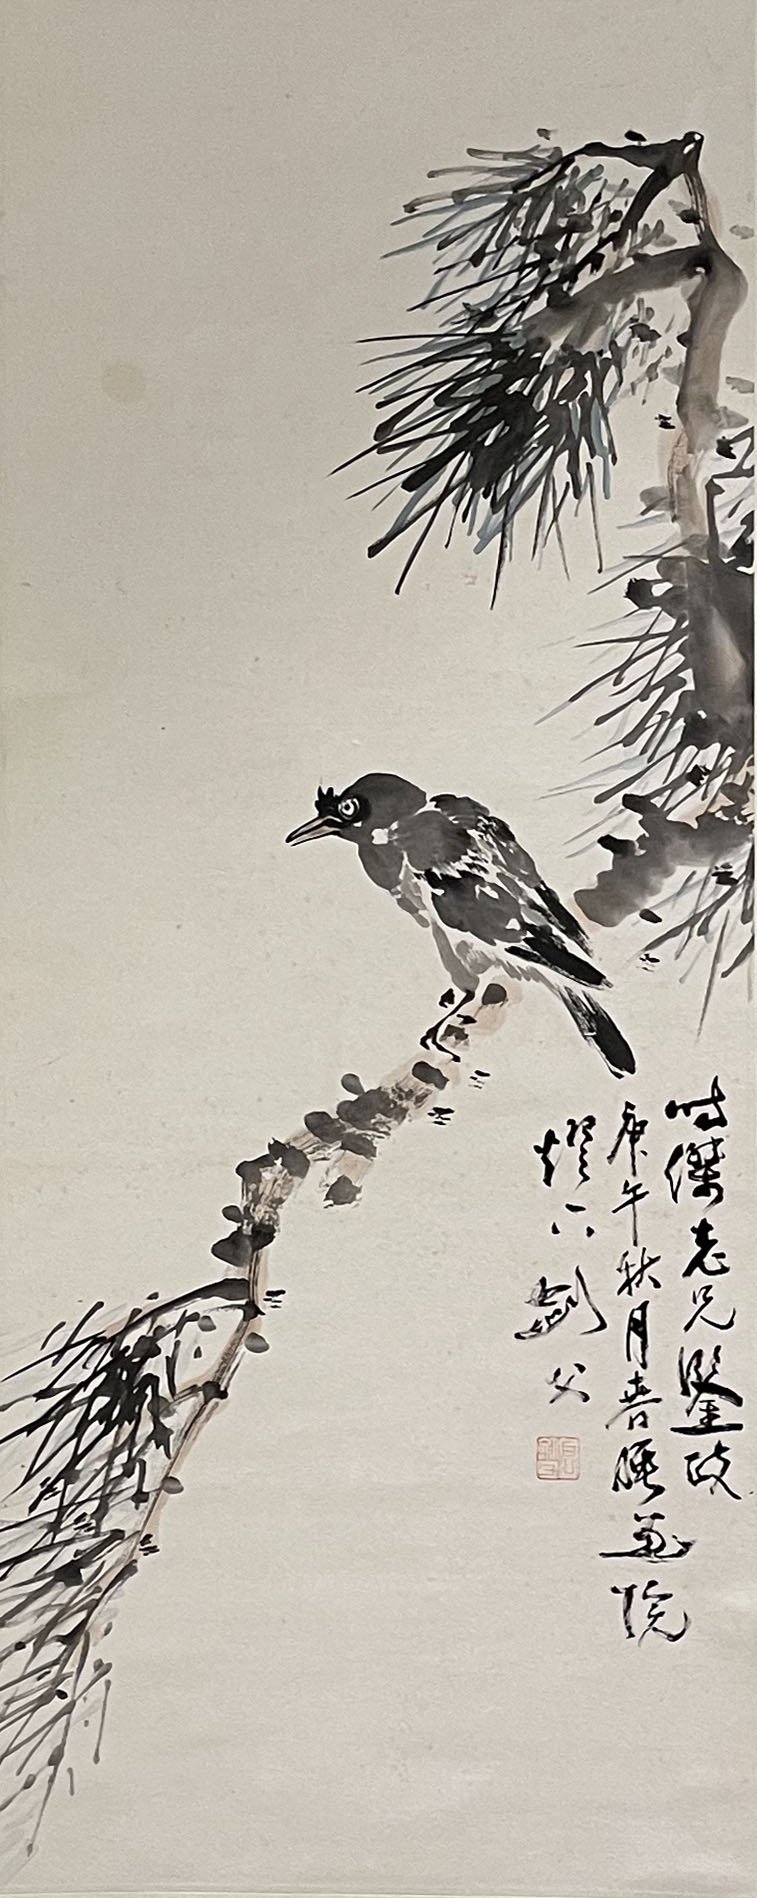 時傑老兄鑒政
庚午秋月春睡畫院
燈下劍父